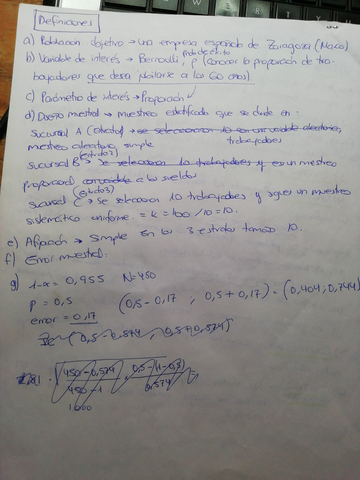 Definiciones
a) Poblacion objetivo → una empresa española de Zaragoza (Maco)
prob de éxito
b) Variable de interés → Bernoulli, p (conocer la proporción de tra-
bajadores que desea jubilarse a los 60 años)
c) Parámetro de interés → Proporción ✓
d) Diseño muestral → muestreo estratificado que se divide en :
Sucursal A (estrato1) → se seleccionaron 10 trabajadores
muestreo aleatorio simple
Sucursal B (estrato2) → se seleccionaron 10 trabajadores y es un muestreo
proporcional a los sueldos
sucursal C (estrato3) → se seleccionan 10 trabajadores y sigue un muestreo
sistemático uniforme = k = 100 / 10 = 10.
e) Afijación → Simple en los 3 estratos tamaño 10.
f) Error muestral:
g) 1-α = 0,955 N=450
p = 0,5 (0,5 - 0,17 , 0,5 + 0,17) = (0,404, 0,744)
error = 0,17
(0,5 - 0,574 , 0,5 + 0,574)
450 - 0,574
450 - 1 0,574